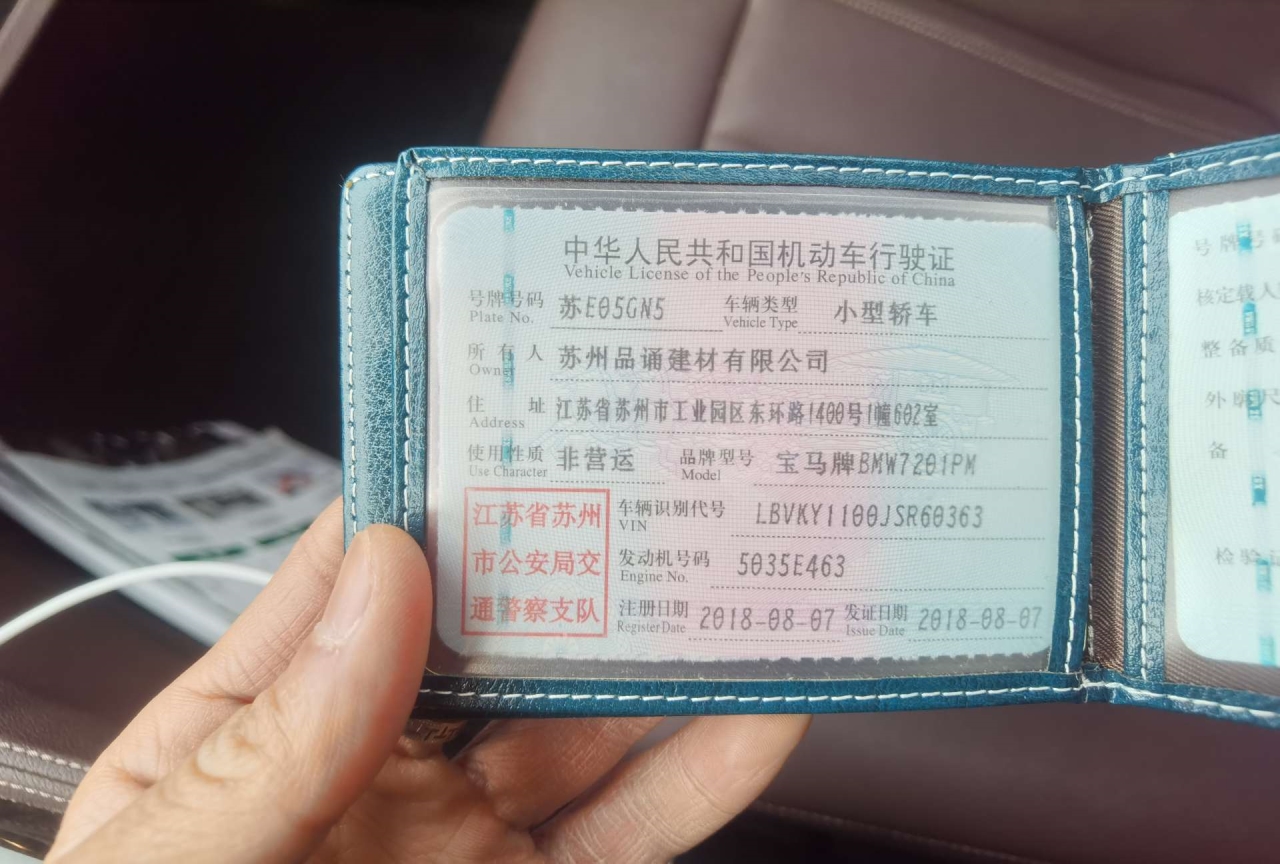 中华人民共和国机动车行驶证
Vehicle License of the People's Republic of China
号牌号码 苏E05GN5 车辆类型 小型轿车
Plate No. Vehicle Type
所有人 苏州品诵建材有限公司
Owner
住址 江苏省苏州市工业园区东环路1400号1幢602室
Address
使用性质 非营运 品牌型号 宝马牌BMW7201PM
Use Character Model
车辆识别代号 LBVKY1100JSR60363
VIN
发动机号码 5035E463
Engine No.
注册日期 2018-08-07 发证日期 2018-08-07
Register Date Issue Date
江苏省苏州
市公安局交
通警察支队
号牌号
核定载人
整备质
外廓尺
备
检验